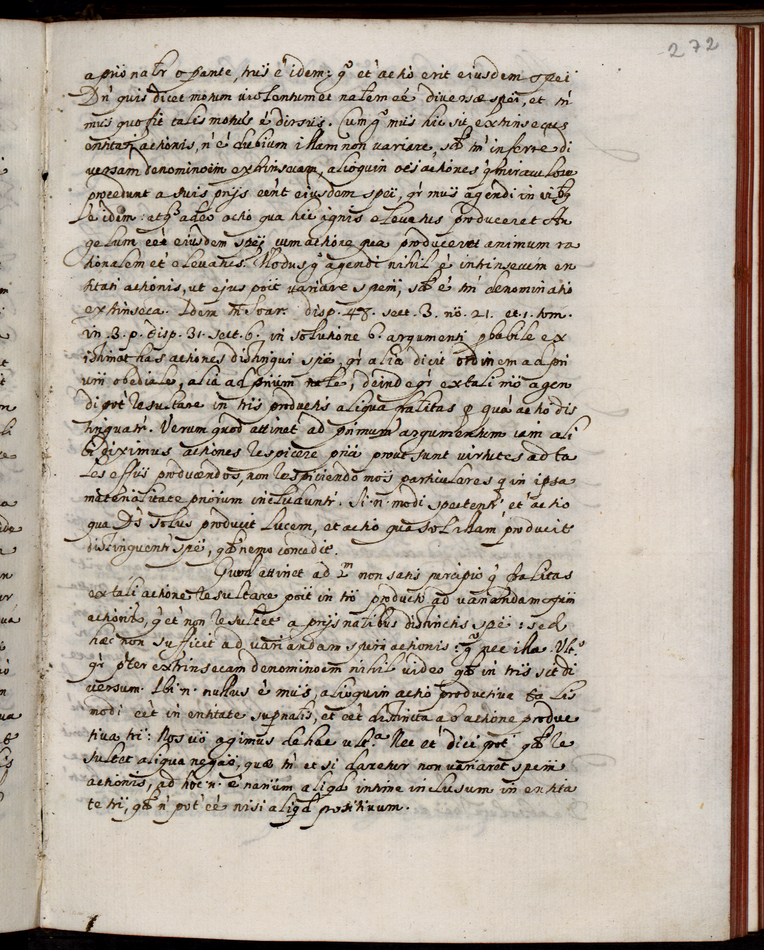 272
a prio natr opante, trıs e idem: g° et actio erit eiusdem spei
Dn' quis dicet motum violentum et natem eé diversæ spei, et tn'
mus quo fit talis motus é dirsus. Cum g° mus hic sit extrinsecus
entitati actionis, n' é dubium illam non variare, sed tn' inferre di
versam denominoem extrinsecam, alioquin oés actiones
procedunt a suis prijs eént eiusdem spei, qr mus agendi in
é idem: et g° adeo actio qua hic ignis elevatus produceret An
gelum eét eiusdem speij cum actione qua produceret animum ra
tionalem et elevatus. Modus g° agendi nihil é intrinsecum en
titati actionis, ut ejus poit variare speim, sed é tn' denominatio
extrinseca. Idem tn Soar. disp. 48. sect. 3. nö. 21. et 1. tom.
in 3. p. disp. 31. sect. 6. in solutione 6. argumenti pbabile ex
istimat has actiones distingui spe, qr alia dicit ordinem ad pri
um obediale, alia ad prium nale, deinde qr ex tali mö agen
di pot' resultare in trıs productis aliqua tralitas p quá actio dis
tinguatr. Verum quod attinet ad primum argumentum iam ali
bi diximus actiones respicere pria prout sunt virtutes ad ta
les effus producendos, non respiciendo mos particulares q in ipsa
materialitate priorum includuntr. Si n. modi spectentr et actio
qua Ds solus producit lucem, et actio qua sol illam producit
distinguentr spei, qd nemo concedit.
Quod attinet ad 2m non satis percipio q tralitas
ex tali actione resultare poit in trö producto ad variandam speim
actionis, q et non resultet a prijs nalibus distinctis spe: sed
hæc non sufficit ad variandam speim actionis: g° nec illa. Ult°
qr pter extrinsecam denominoem nihil video qd in trıs sit di
versum. Ibi n. nullus é mus, alioquin actio productiva talis
modi eét in entitate supnalis, et eét distincta ab actione produc
tiva tri: Nos vö agimus de hac ulta. Nec et dici pot' qd re
sultet aliqua negaö, quæ tn' et si daretur non variaret speim
actionis, ad hoc n. é narium aliqd intime inclusum in entita
te tri, qd n' pot' eé nisi aliqd positivum.